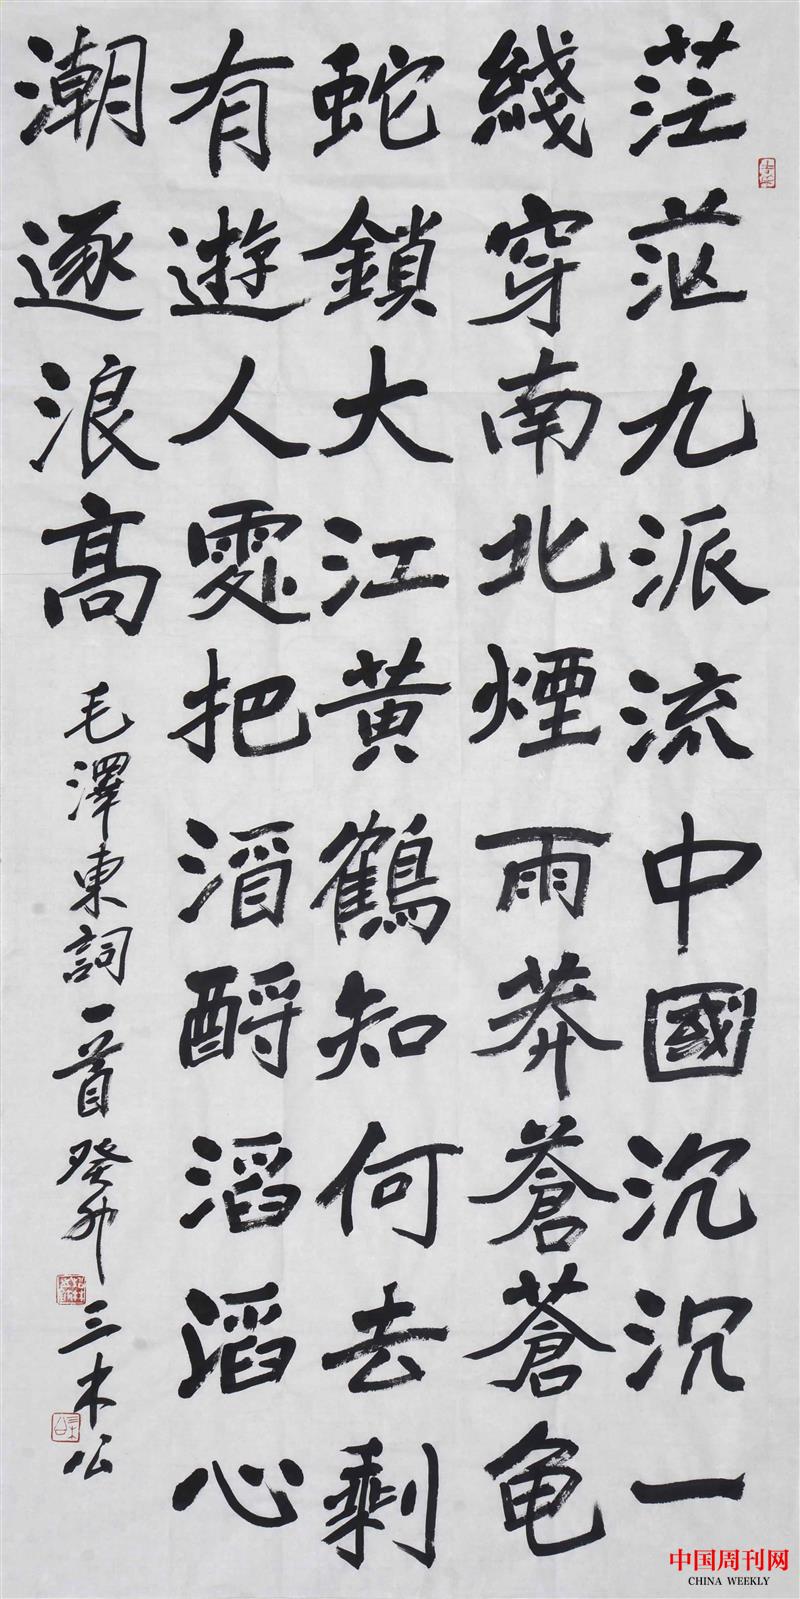 茫茫九派流中國沉沉一
綫穿南北煙雨莽蒼蒼龟
蛇鎖大江黄鶴知何去剩
有遊人處把酒酹滔滔心
潮逐浪高
毛澤東詞一首癸卯三木公
中国周刊网
CHINA WEEKLY